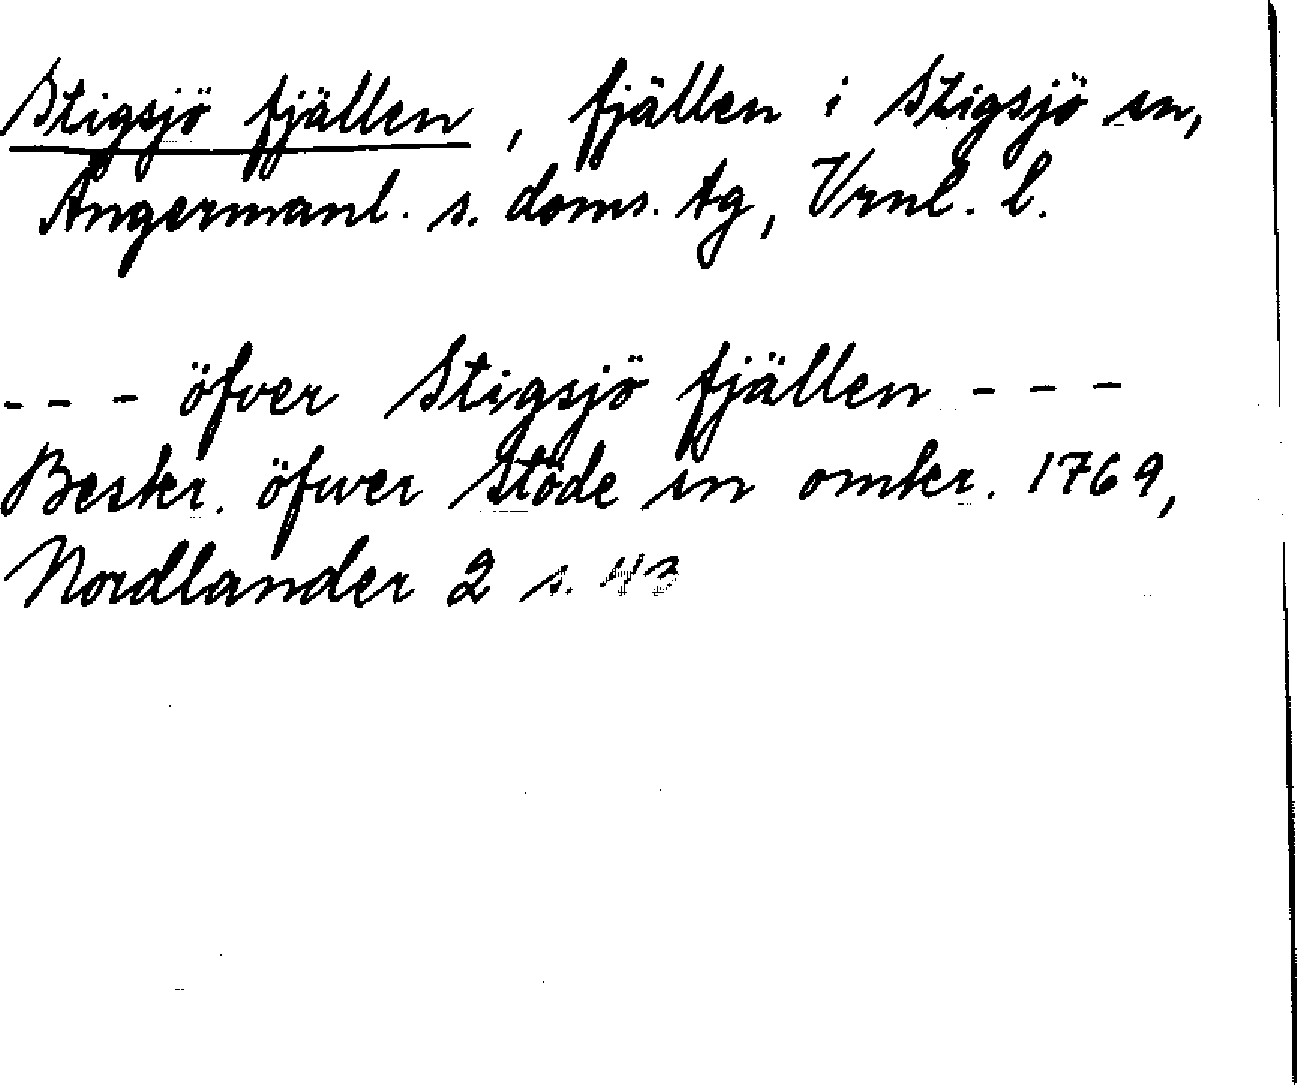 Stigsjö fjällen, fjällen i Stigsjö sn,
Ångermanl. s. doms. tg, Vrnl. l.
--- öfver Stigsjö fjällen ---
Beskr. öfwer Stöde sn omkr. 1769,
Nordlander 2 s. 43